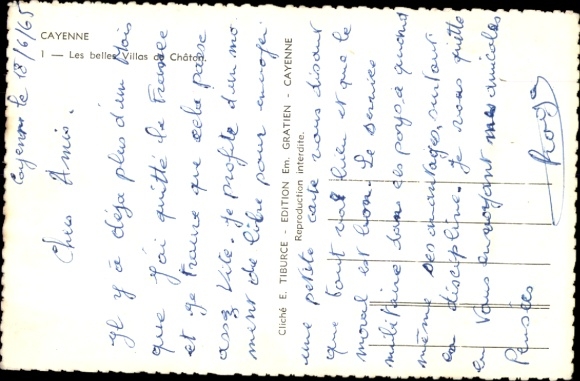 CAYENNE
1 — Les belles Villas de Châton.
Cliché E. TIBURCE - EDITION Em. GRATIEN - CAYENNE
Reproduction interdite.
Cayenne le 18/6/65
Chers Amis.
Il y a déja plus d'un mois
que j'ai quitté la France
et je trouve que cela passe
assez vite. Je profite d'un mo
ment de libre pour envoyer
une petite carte vous disant
que tout va bien et que le
moral est bon. Le service
militaire dans ces pays a quand
même des avantages, surtout
en discipline. Je vous quitte
en vous envoyant mes amicales
Pensées